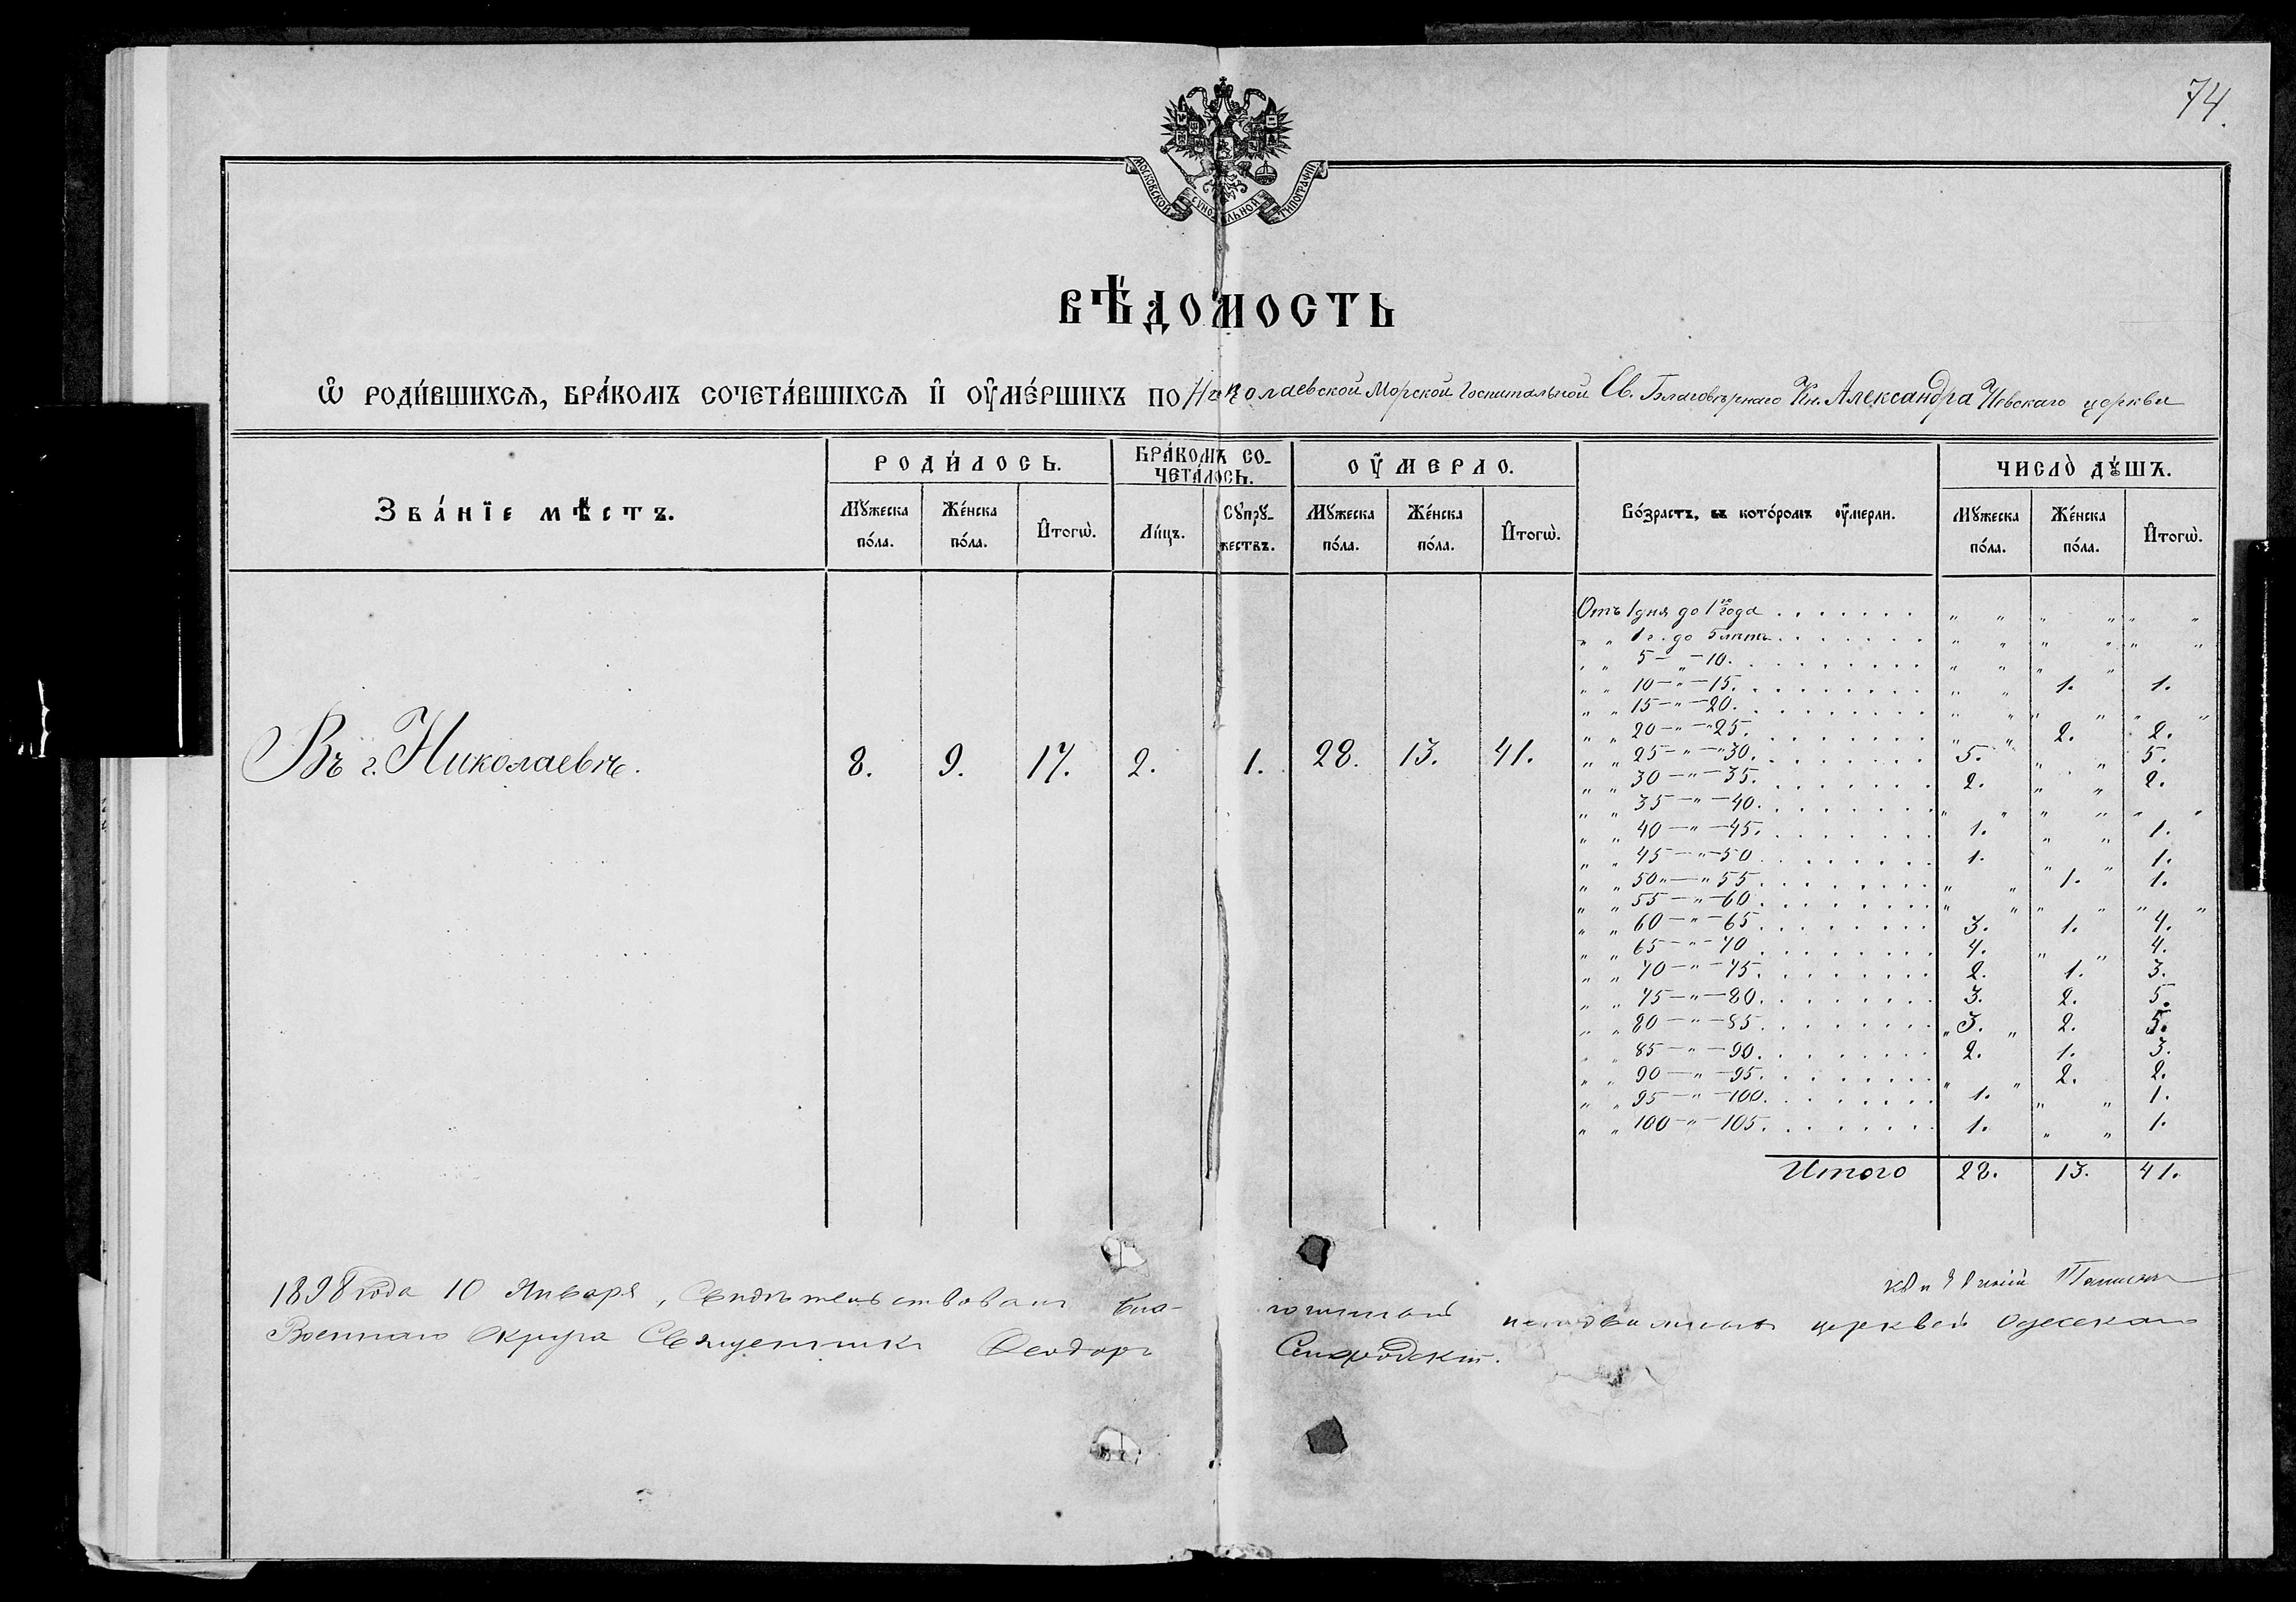 74.
МОСКОВСКОЙ СѴНОДАЛЬНОЙ ТИПОГРАФІИ
ВѢДОМОСТЬ
Ѡ РОДИ́ВШИХСѦ, БРА́КОМЪ СОЧЕТА́ВШИХСѦ И҆ ОУ҆МЕ́РШИХЪ ПО Николаевской Морской Госпитальной Св. Благовѣрнаго Кн. Александра Невскаго церкви
Зва́нїе мѣстъ.
РОДИ́ЛОСЬ.
Мꙋ́жеска по́ла.
Же́нска по́ла.
И҆того̀.
БРА́КОМЪ СО-
ЧЕТА́ЛОСЬ.
Ли́цъ.
Сꙋпрꙋ́-
жествъ.
ОУ҆́МЕРЛО.
Мꙋ́жеска по́ла.
Же́нска по́ла.
И҆того̀.
Во́зрастъ, въ кото́ромъ оу҆́мерли.
ЧИСЛО̀ ДꙋШЪ.
Мꙋ́жеска по́ла.
Же́нска по́ла.
И҆того̀.
Въ г. Николаевѣ. 8. 9. 17. 2. 1. 28. 13. 41.
Отъ 1 дня до 1го года . . . . . . . " " " " " "
" " 1 г. до 5 лѣтъ . . . . . . . " " " " " "
" " 5 — " — 10. . . . . . . . . " " " "
" " 10 — " — 15. . . . . . . . . " " 1. 1.
" " 15 — " — 20. . . . . . . . . " " " " " "
" " 20 — " — 25. . . . . . . . . " " 2. 2.
" " 25 — " — 30. . . . . . . . . 5. " " 5.
" " 30 — " — 35. . . . . . . . . 2. " " 2.
" " 35 — " — 40. . . . . . . . . " " " " " "
" " 40 — " — 45. . . . . . . . . 1. " " 1.
" " 45 — " — 50 . . . . . . . . 1. " " 1.
" " 50 " — " 55 . . . . . . . . " " 1. 1.
" " 55 — " — 60 . . . . . . . . " " " " " "
" " 60 — " — 65 . . . . . . . . 3. 1. 4.
" " 65 — " — 70 . . . . . . . . 4. " " 4.
" " 70 — " — 75. . . . . . . . . 2. 1. 3.
" " 75 — " — 80. . . . . . . . . 3. 2. 5.
" " 80 — " — 85. . . . . . . . . " 3. " 2. 5.
" " 85 — " — 90. . . . . . . . . 2. 1. 3.
" " 90 — " — 95. . . . . . . . . " " 2. 2.
" " 95 — " — 100. . . . . . . . . 1. " " 1.
" " 100 — " — 105. . . . . . . . 1. " " 1.
Итого 28. 13. 41.
1898 года 10 Января, Свидѣтельствовалъ Бла-гочинный церквей Одесскаго
Военнаго Округа Священникъ Ѳеодоръ